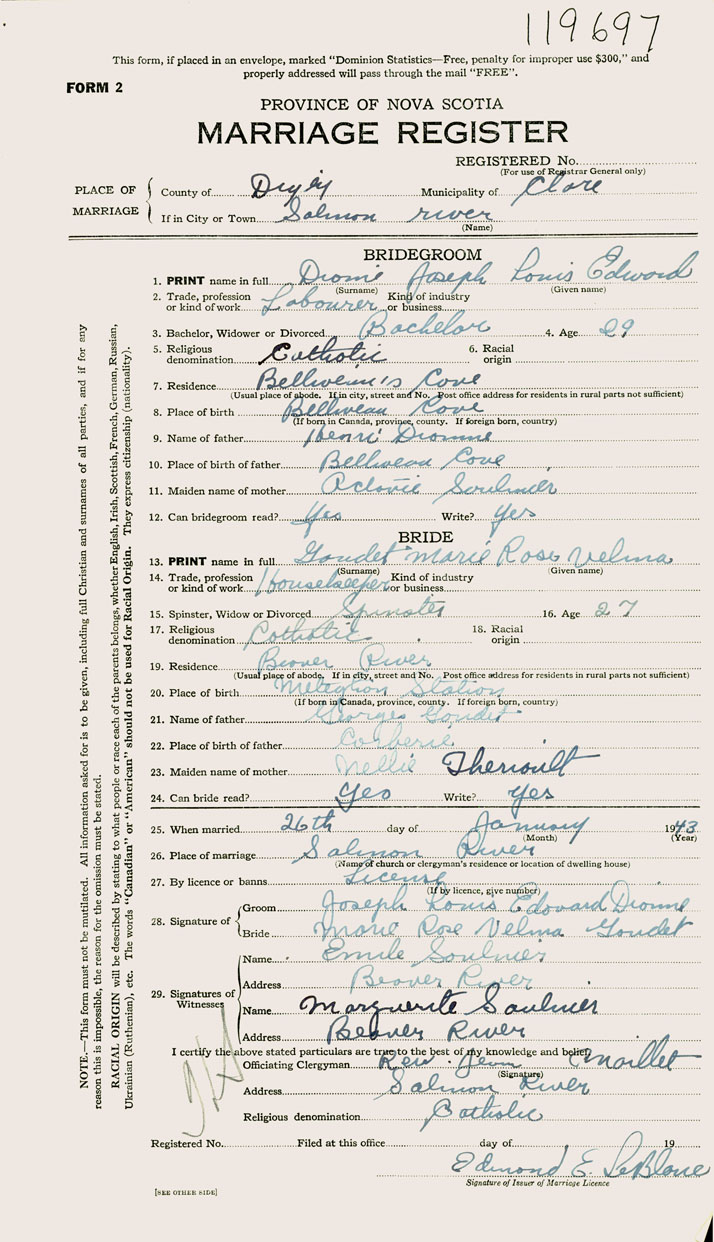 119697
This form, if placed in an envelope, marked "Dominion Statistics—Free, penalty for improper use $300," and
properly addressed will pass through the mail "FREE".
FORM 2
PROVINCE OF NOVA SCOTIA
MARRIAGE REGISTER
REGISTERED No.
(For use of Registrar General only)
PLACE OF MARRIAGE
County of Digby Municipality of Clare
If in City or Town Salmon river
(Name)
BRIDEGROOM
1. PRINT name in full Dionne Joseph Louis Edward
(Surname) (Given name)
2. Trade, profession or kind of work Labourer Kind of industry or business
3. Bachelor, Widower or Divorced Bachelor 4. Age 29
5. Religious denomination Catholic 6. Racial origin
7. Residence Belliveau's Cove
(Usual place of abode. If in city, street and No. Post office address for residents in rural parts not sufficient)
8. Place of birth Belliveau Cove
(If born in Canada, province, county. If foreign born, country)
9. Name of father Henri Dionne
10. Place of birth of father Belliveau Cove
11. Maiden name of mother Saulnier
12. Can bridegroom read? Yes Write? yes
BRIDE
13. PRINT name in full Goudet Marie Rose Velma
(Surname) (Given name)
14. Trade, profession or kind of work Housekeeper Kind of industry or business
15. Spinster, Widow or Divorced Spinster 16. Age 27
17. Religious denomination Catholic 18. Racial origin
19. Residence Beaver River
(Usual place of abode. If in city, street and No. Post office address for residents in rural parts not sufficient)
20. Place of birth Meteghan Station
(If born in Canada, province, county. If foreign born, country)
21. Name of father Georges Goudet
22. Place of birth of father Corberie
23. Maiden name of mother Nellie Theriault
24. Can bride read? Yes Write? yes
25. When married 26th day of January 1943
(Month) (Year)
26. Place of marriage Salmon River
(Name of church or clergyman's residence or location of dwelling house)
27. By licence or banns License
(If by licence, give number)
28. Signature of
Groom Joseph Louis Edouard Dionne
Bride Marie Rose Velma Goudet
29. Signatures of Witnesses
Name Emile Saulnier
Address Beaver River
Name Marguerite Saulnier
Address Beaver River
I certify the above stated particulars are true to the best of my knowledge and belief.
Officiating Clergyman Rev. Jean Maillet
(Signature)
Address Salmon River
Religious denomination Catholic
Registered No. Filed at this office day of 19
Edmond E. LeBlanc
Signature of Issuer of Marriage Licence
[SEE OTHER SIDE]
NOTE.—This form must not be mutilated. All information asked for is to be given, including full Christian and surnames of all parties, and if for any
reason this is impossible, the reason for the omission must be stated.
RACIAL ORIGIN will be described by stating to what people or race each of the parents belongs, whether English, Irish, Scottish, French, German, Russian,
Ukrainian (Ruthenian), etc. The words "Canadian" or "American" should not be used for Racial Origin. They express citizenship (nationality).